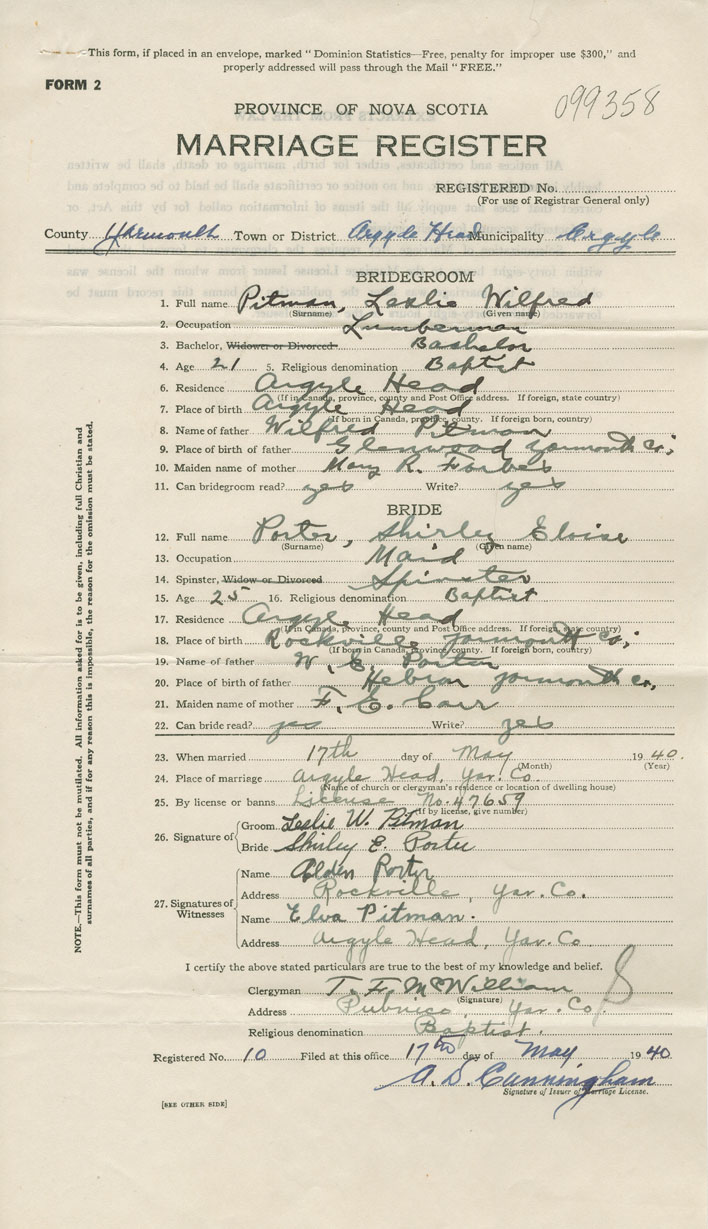 This form, if placed in an envelope, marked "Dominion Statistics—Free, penalty for improper use $300," and
properly addressed will pass through the Mail "FREE."
FORM 2
099358
PROVINCE OF NOVA SCOTIA
MARRIAGE REGISTER
REGISTERED No.
(For use of Registrar General only)
County Yarmouth Town or District Argyle Head Municipality Argyle
BRIDEGROOM
1. Full name Pitman, Leslie Wilfred
(Surname) (Given name)
2. Occupation Lumberman
3. Bachelor, Widower or Divorced Bachelor
4. Age 21 5. Religious denomination Baptist
6. Residence Argyle Head
(If in Canada, province, county and Post Office address. If foreign, state country)
7. Place of birth Argyle Head
(If born in Canada, province, county. If foreign born, country)
8. Name of father Wilfred Pitman
9. Place of birth of father Glenwood Yarmouth Co;
10. Maiden name of mother Mary R. Forbes
11. Can bridegroom read? yes Write? yes
BRIDE
12. Full name Porter, Shirley Eloise
(Surname) (Given name)
13. Occupation Maid
14. Spinster, Widow or Divorced Spinster
15. Age 25 16. Religious denomination Baptist
17. Residence Argyle Head
(If in Canada, province, county and Post Office address. If foreign, state country)
18. Place of birth Rockville Yarmouth Co;
(If born in Canada, province, county. If foreign born, country)
19. Name of father W. E. Porter
20. Place of birth of father Hebron Yarmouth Co,
21. Maiden name of mother F. E. Carr
22. Can bride read? yes Write? yes
23. When married 17th day of May 1940.
(Month) (Year)
24. Place of marriage Argyle Head, Yar. Co.
(Name of church or clergyman's residence or location of dwelling house)
25. By license or banns License No. 47659
(If by license, give number)
26. Signature of Groom Leslie W. Pitman
Bride Shirley E. Porter
27. Signatures of Witnesses Name Alden Porter
Address Rockville, Yar. Co.
Name Elva Pitman.
Address Argyle Head, Yar. Co
I certify the above stated particulars are true to the best of my knowledge and belief.
Clergyman T. F. McWilliam
(Signature)
Address Pubnico, Yar. Co.
8
Religious denomination Baptist.
Registered No. 10 Filed at this office 17th day of May 1940.
A. D. Cunningham
Signature of Issuer of Marriage License.
[SEE OTHER SIDE]
NOTE.—This form must not be mutilated. All information asked for is to be given, including full Christian and
surnames of all parties, and if for any reason this is impossible, the reason for the omission must be stated.